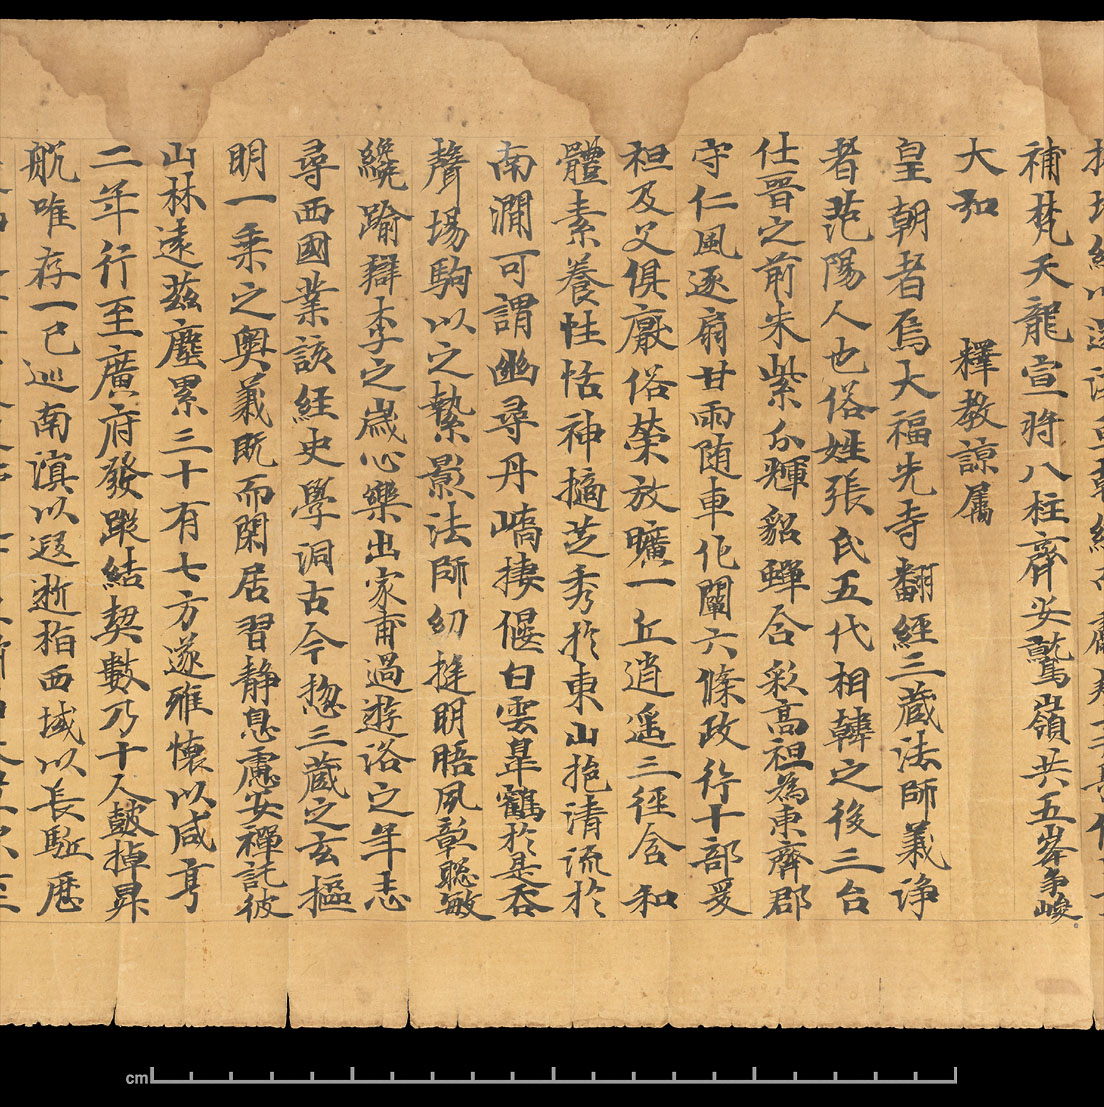 補梵天龍宣將八柱齊安鷲嶺共五峯争峻
大弘　釋教諒属
皇朝者焉大福先寺翻經三藏法師義淨
者范陽人也俗姓張氏五代相韓之後三台
仕晋之前朱紫分輝貂蟬合彩高祖為東齊郡
守仁風逐扇甘雨随車化闡六條政行十部爰
祖及父俱厭俗榮放曠一丘逍遥三徑含和
體素養性恬神摘芝秀於東山挹清流於
南澗可謂幽尋丹嶠捿偃白雲臯鶴於是吞
聲場駒以之縶影法師幼挺明晤夙彰聡敏
纔踰辯李之歲心樂出家甫過遊洛之年志
尋西國業該經史學洞古今惣三藏之玄樞
明一乗之奥義既而閑居習静息慮安禪託彼
山林遠兹塵累三十有七方遂雅懷以咸亨
二年行至廣府發蹤結契數乃十人鼓棹昇
航唯存一己巡南溟以遐逝指西域以長駈歷
cm